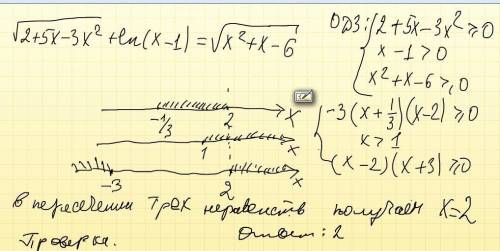 √(2+5x-3x²) + ln(x-1) = √(x²+x-6)
ОДЗ: { 2+5x-3x² ≥ 0
x-1 > 0
x²+x-6 ≥ 0
{ -3(x+1/3)(x-2) ≥ 0
x > 1
(x-2)(x+3) ≥ 0
-1/3 2 x
1 x
-3 2 x
в пересечении трех неравенств получаем x=2
Проверка. Ответ: 2